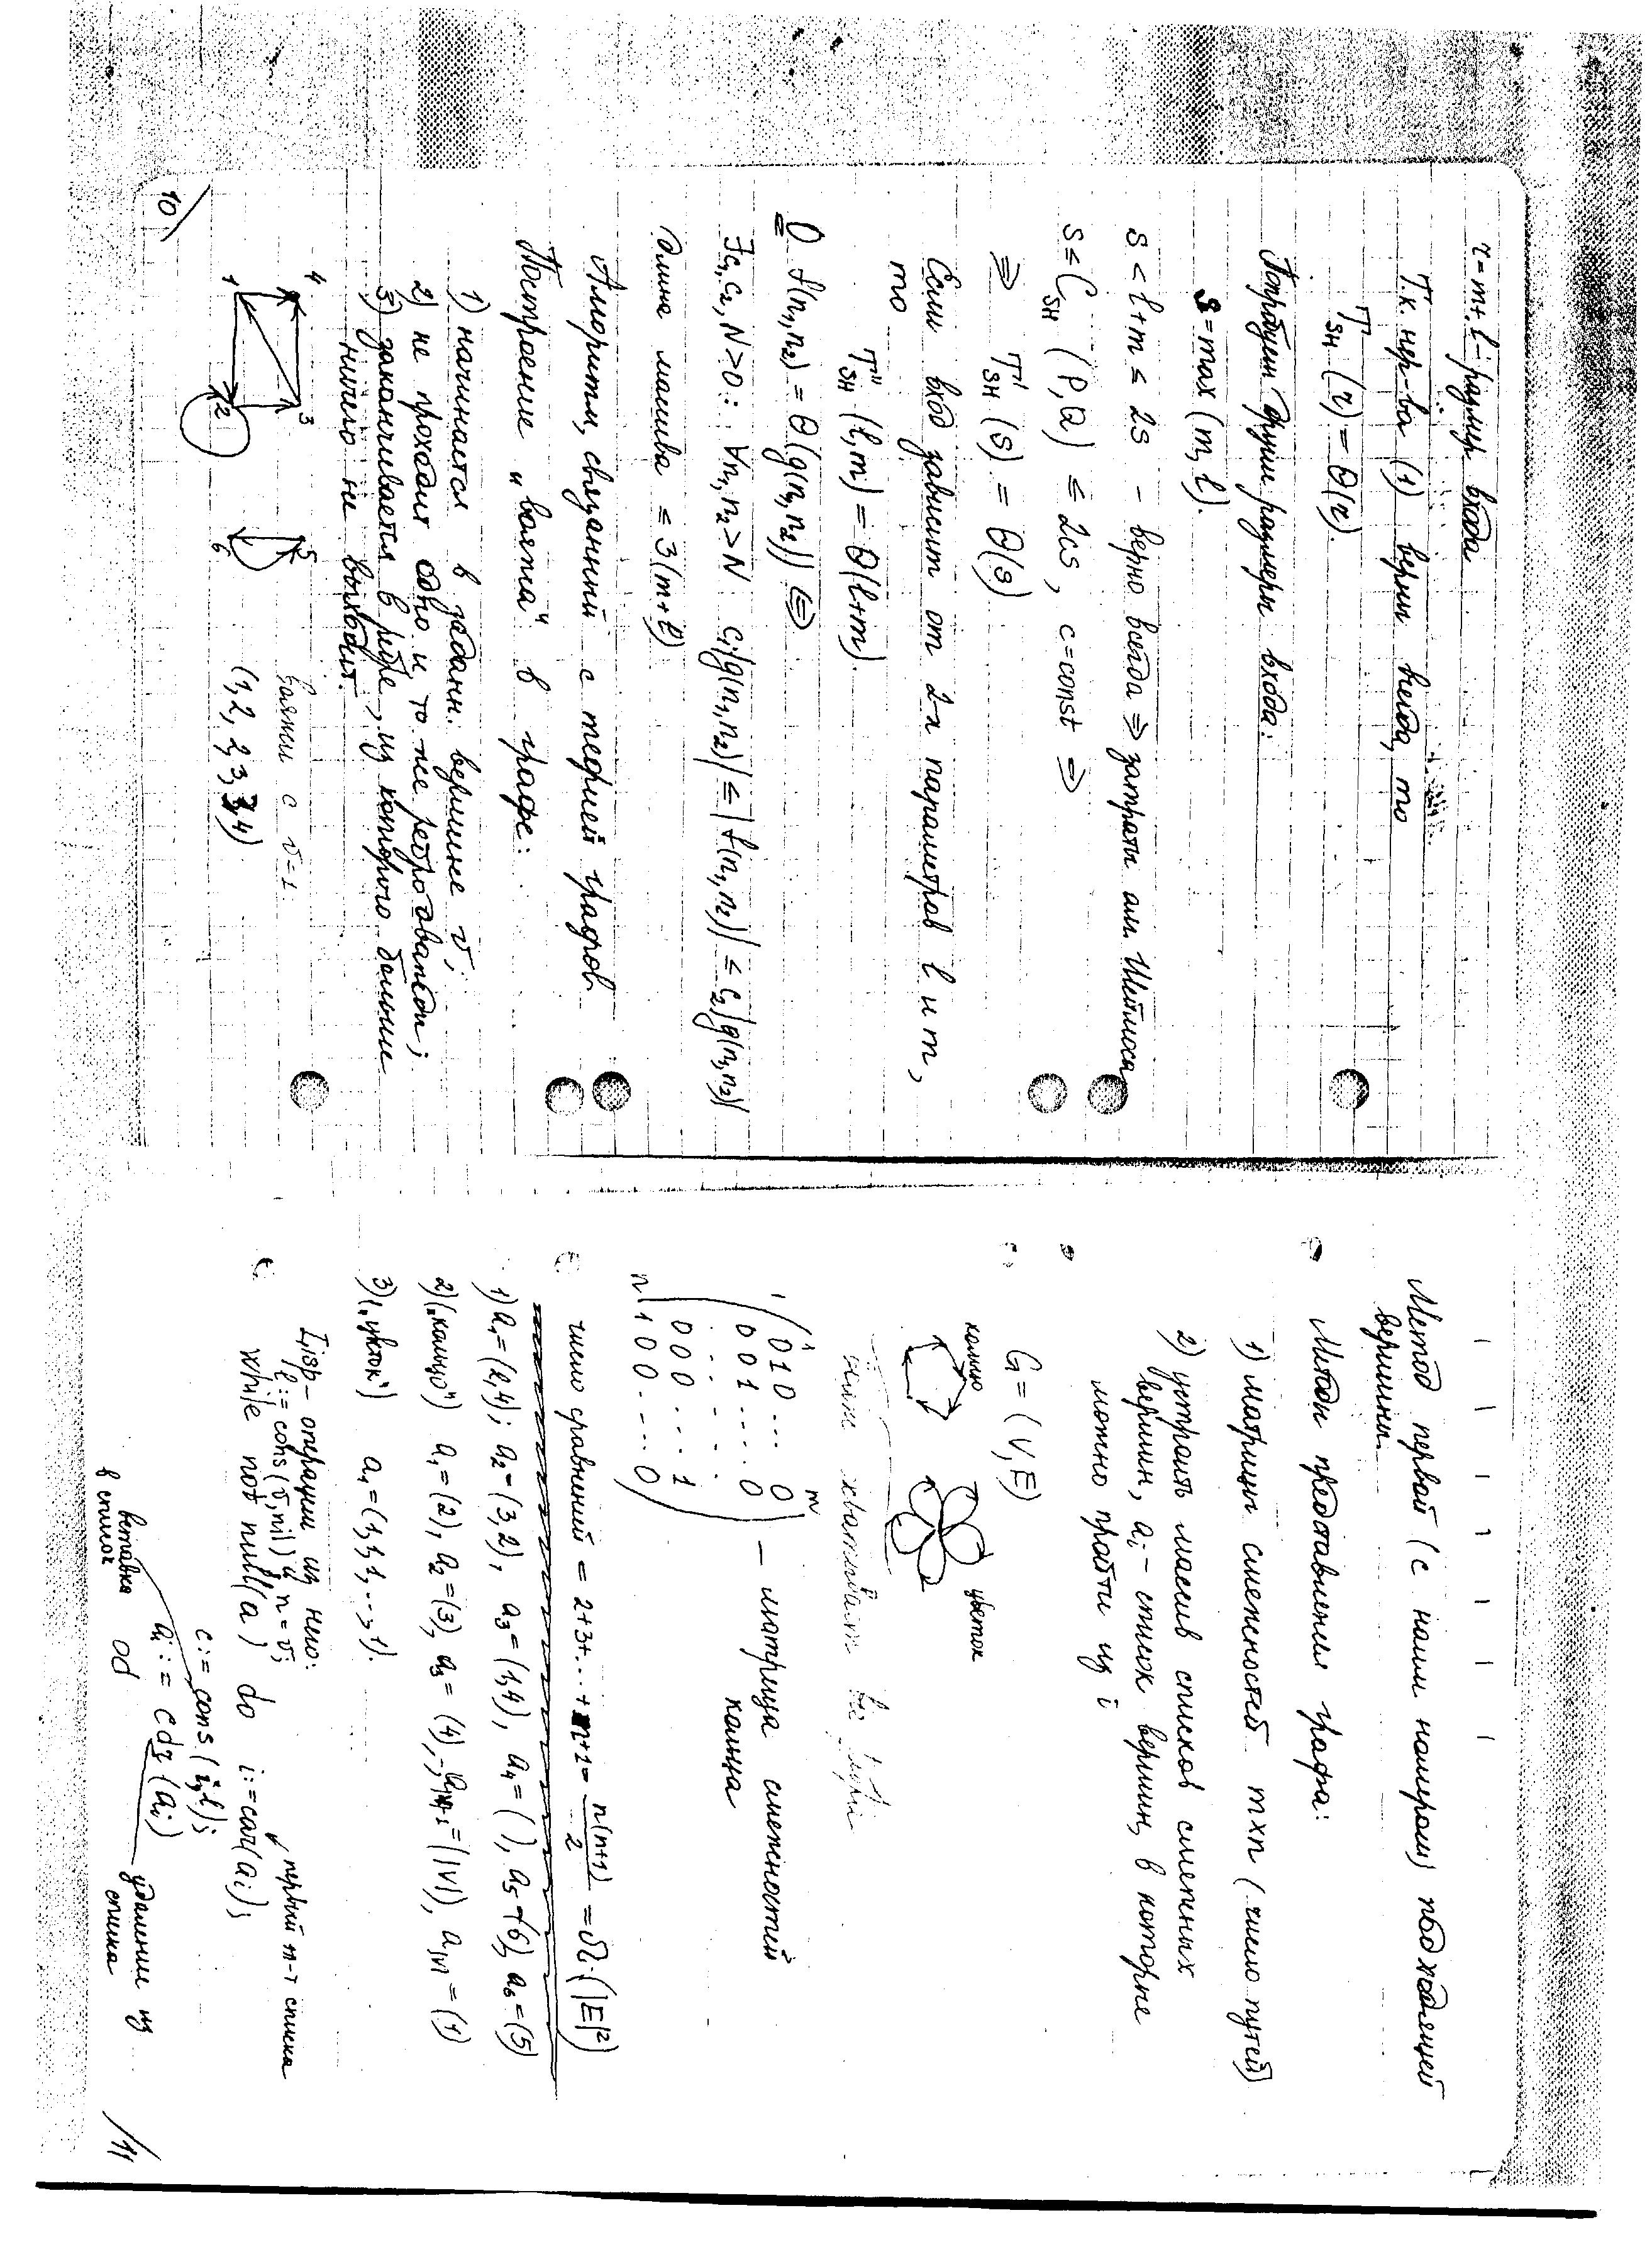 r = m + l – размер входа
Т.к. нер-ва (1) верны всегда, то
T_SH (r) = θ(r).
Попробуем другие размеры входа:
s = max (m, l).
s < l + m ≤ 2s – верно всегда ⇒ затраты алг. Шеймоса
s ≤ C_SH (P, Q) ≤ 2cs, c = const ⇒
⇒ T'_SH (s) = θ(s)
Если вход зависит от 2х параметров l и m,
то
T''_SH (l, m) = θ(l+m).
O f(n₁,n₂) = θ(g(n₁,n₂)) ⇔
∃c₁,c₂,N>0: ∀n₁,n₂>N c₁|g(n₁,n₂)| ≤ |f(n₁,n₂)| ≤ c₂|g(n₁,n₂)|
длина массива = 3(m+l)
Алгоритм, связанный с теорией графов
Построение "ваяти" в графе:
1) начинается в заданн. вершине v;
2) не проходит одно и то же ребро дважды;
3) заканчивается в , из которого больше
ничего не выходит.
4 3 5
1 2 6
ваяти с v=1
(1, 2, 2, 3, 1, 4)
10/
Метод первой (с наим номером) подходящей
вершины.
Методы представления графа:
1) матрица смежностей m×n (число путей)
2) устроить массив списков смежных
вершин, aᵢ – список вершин, в которые
можно пройти из i
G = (V, E)
кольцо цветок
1 1 m
( 0 1 0 ... 0
0 0 1 ... 0
. . . . . .
0 0 0 ... 1
n 1 0 0 ... 0 ) – матрица смежностей
кольца
число сравнений = 2+3+...+n+1 = n(n+1)/2 = Ω(|E|²)
1) a₁=(2,4); a₂=(3,2), a₃=(1,4), a₄=( ), a₅=(6), a₆=(5)
2) („кольцо") a₁=(2), a₂=(3), a₃=(4), ..., =(|V|), a_|V| = (1)
3) („цветок") a₁=(1,1,1,...,1).
Lisp – операции из него:
l:=cons(v,nil); i:=v;
первый эл-т списка
while not null(aᵢ) do i:=car(aᵢ);
l:=cons(i,l);
aᵢ := cdr(aᵢ)
od
вставка
в список
удаление из
списка
/11